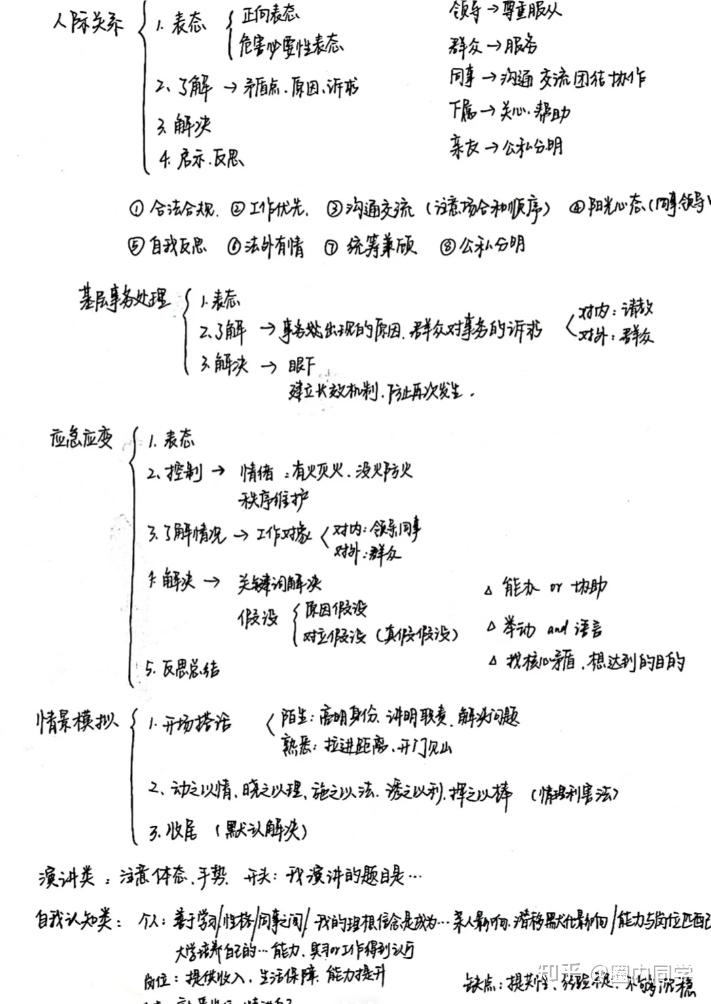 人际关系
1. 表态
正向表态
危害必要性表态
2. 了解 → 矛盾点、原因、诉求
3. 解决
4. 启示、反思
领导 → 尊重服从
群众 → 服务
同事 → 沟通交流团结协作
下属 → 关心、帮助
亲友 → 公私分明
① 合法合规、② 工作优先、③ 沟通交流（注意场合和顺序） ④ 阳光心态（同事领导
⑤ 自我反思 ⑥ 法外有情 ⑦ 统筹兼顾 ⑧ 公私分明
基层事务处理
1. 表态
2. 了解 → 事务出现的原因、群众对事务的诉求
对内：请教
对外：群众
3. 解决 → 眼下
建立长效机制，防止再次发生。
应急应变
1. 表态
2. 控制 → 情绪：有火灭火、没火防火
秩序维护
3. 了解情况 → 工作对象
对内：领导同事
对外：群众
4. 解决 → 关键词解决
假设
原因假设
对立假设（真假假设）
5. 反思总结
△ 能力 or 协助
△ 举动 and 语言
△ 找核心矛盾、想达到的目的
情景模拟
1. 开场搭话
陌生：表明身份、讲明职责、解决问题
熟悉：拉进距离、开门见山
2. 动之以情、晓之以理、施之以法、诱之以利、挥之以棒（情理利害法）
3. 收尾（默认解决）
演讲类：注意体态、手势 开头：我演讲的题目是…
自我认知类： 个人：善于学习/性格/同事之间/我的理想信念是成为…亲人影响、潜移默化影响/能力与岗位匹配
大学培养自己的…能力、实习or工作得到认可
岗位：提供收入、生活保障、能力提升
缺点：
知乎 @圈内同学